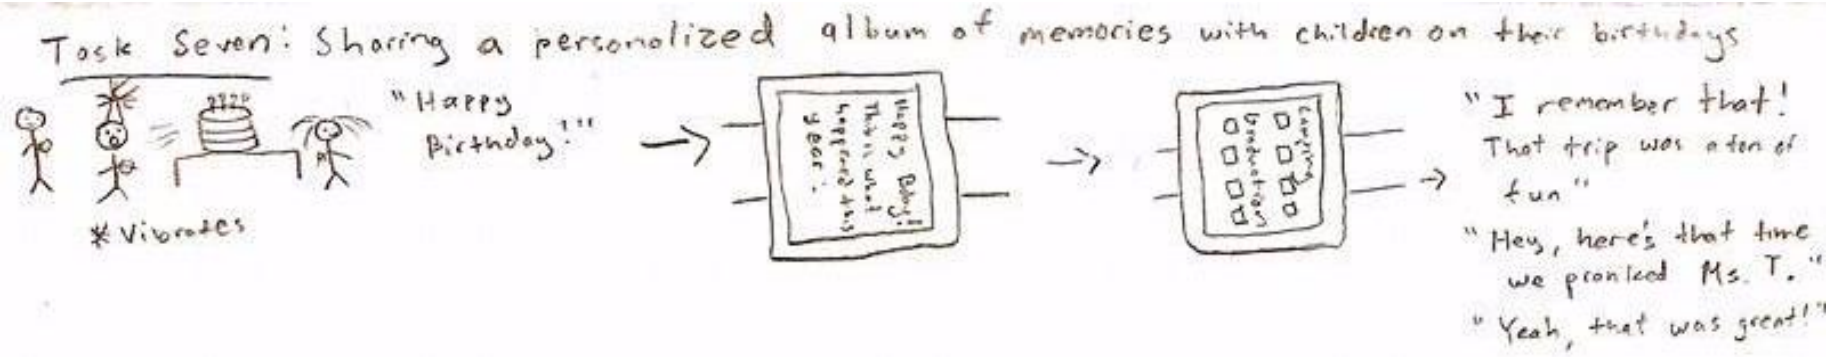 Task Seven: Sharing a personalized album of memories with children on their birthdays
"Happy
Birthday!"
*Vibrates
Happy Bday!
This is what
happened this
year:
Camping
Graduation
"I remember that!
That trip was a ton of
fun"
"Hey, here's that time
we pranked Ms. T."
"Yeah, that was great!"